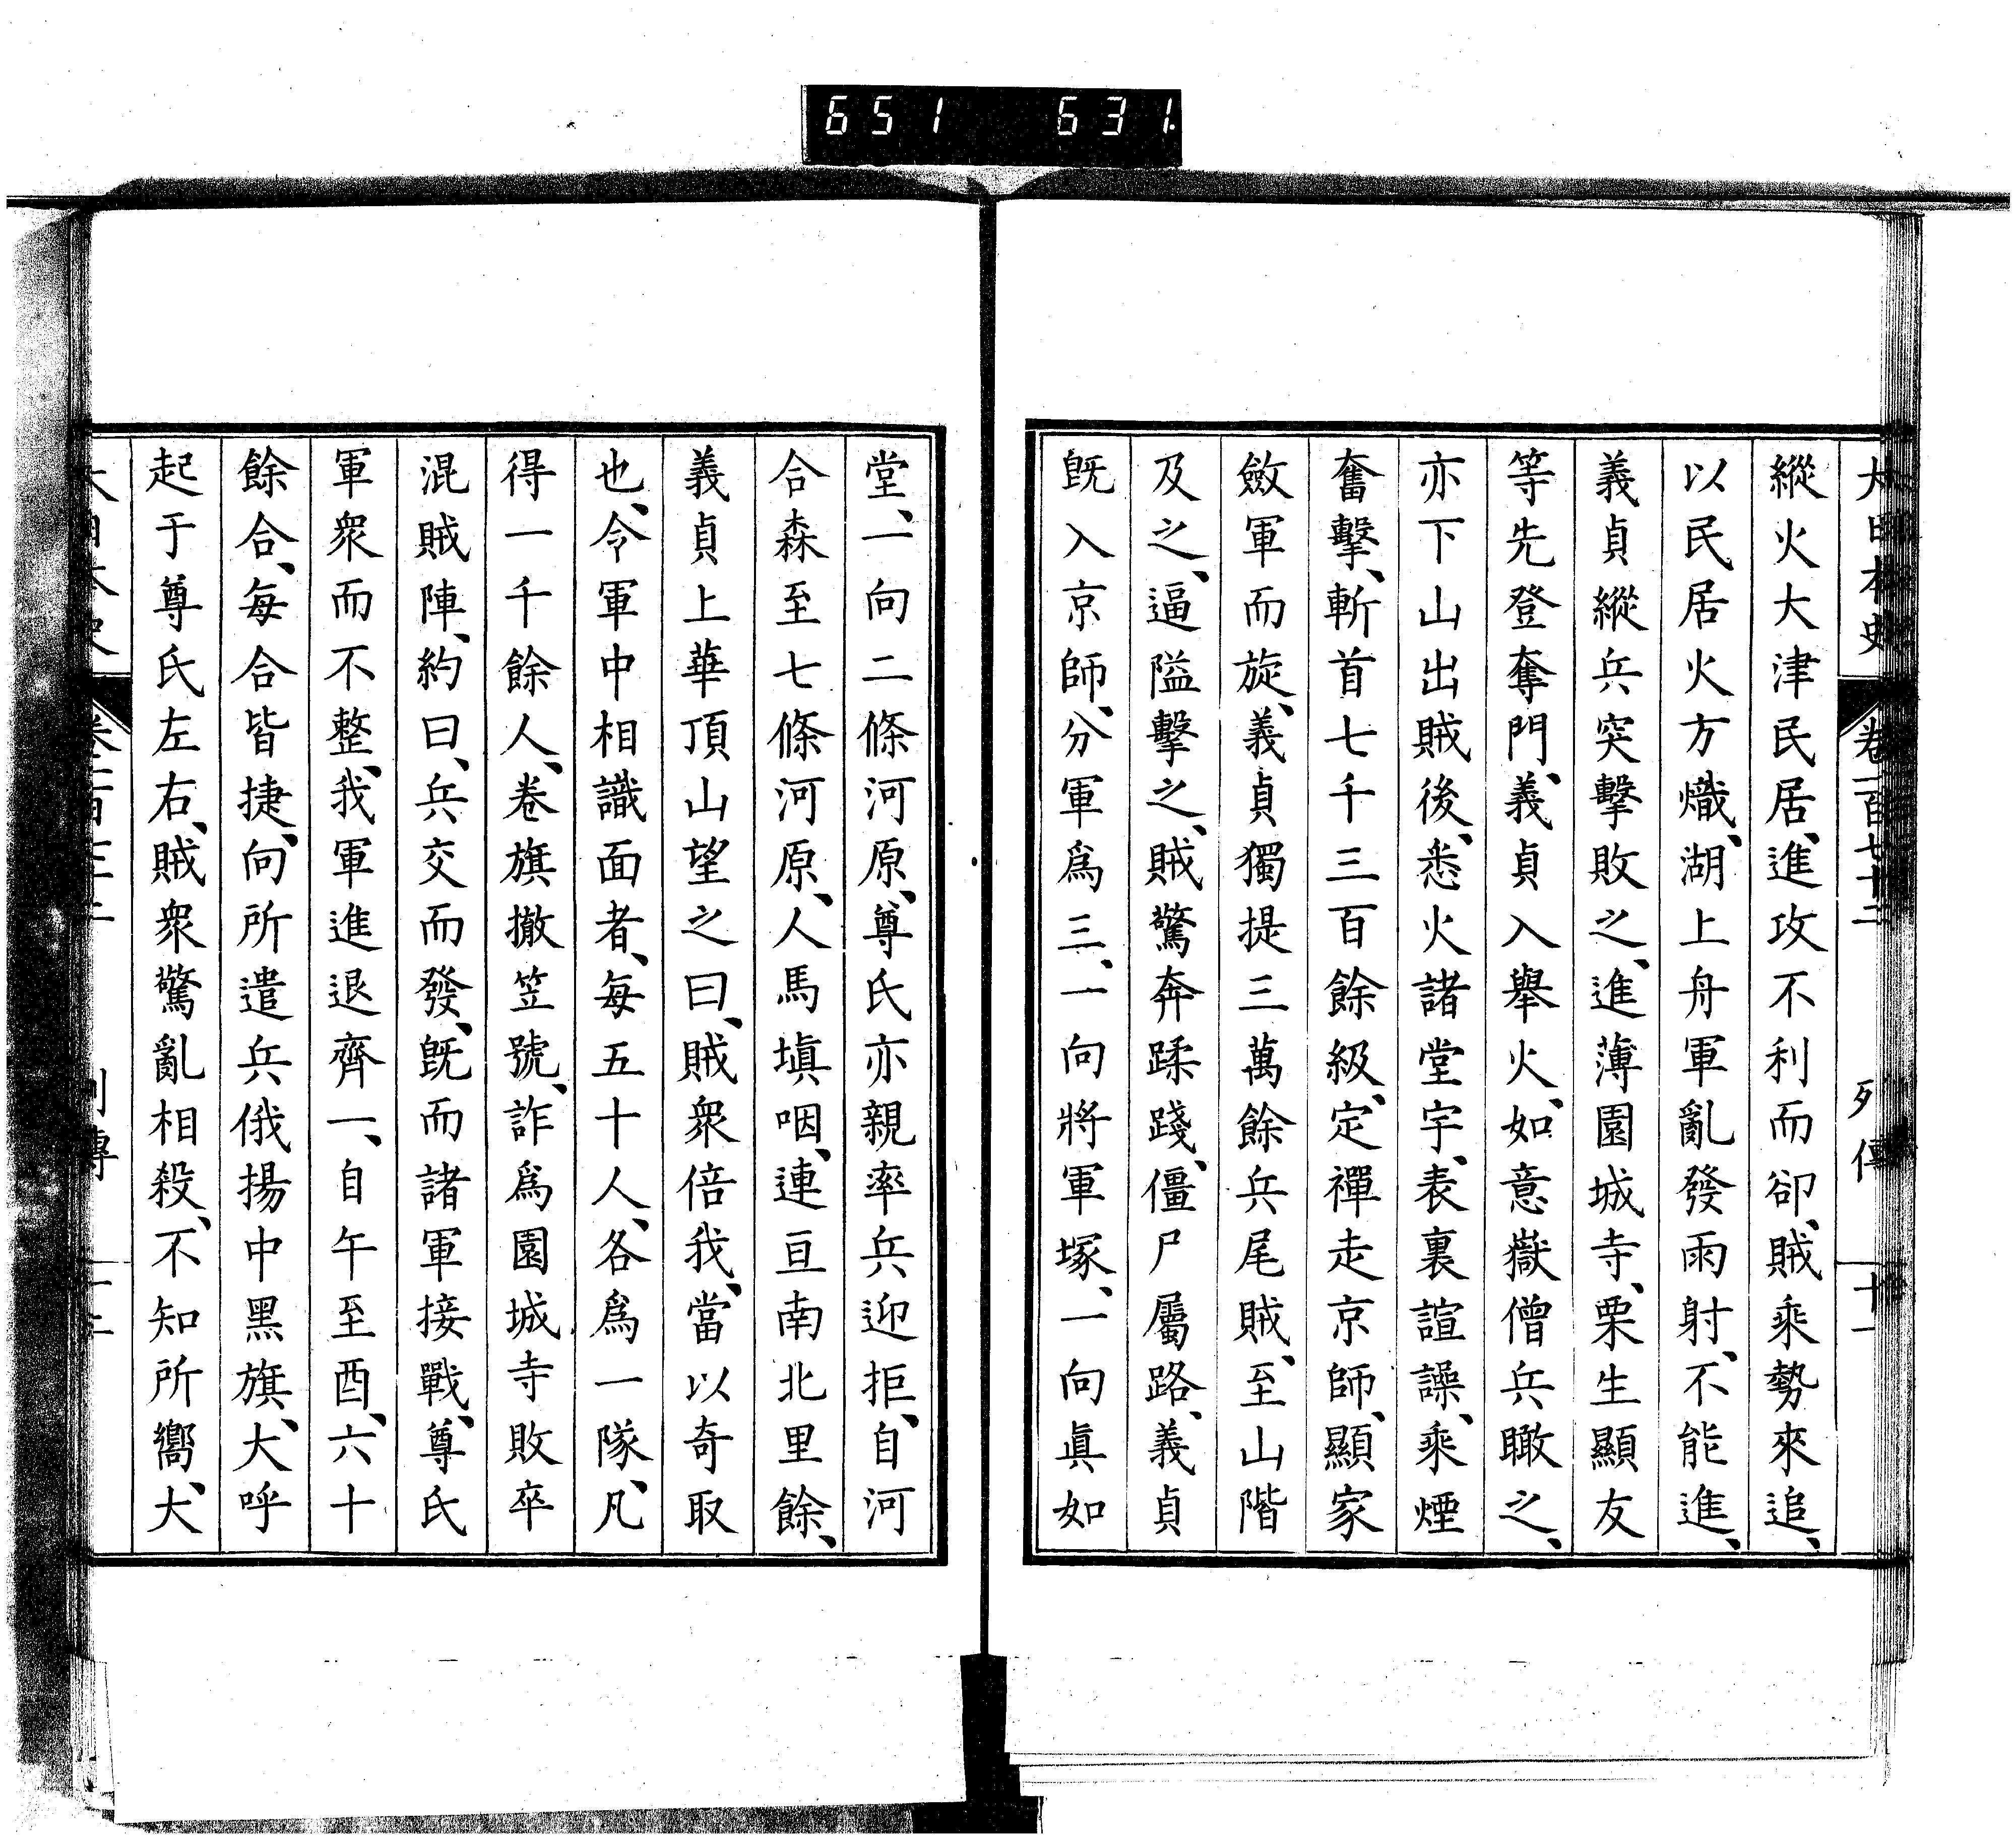 651 631
大日本史 卷一百七十二 列傳 十一
縱火大津民居、進攻不利而卻、賊乘勢來追、
以民居火方熾、湖上舟軍亂發雨射、不能進、
義貞縱兵突擊敗之、進薄園城寺、栗生顯友
等先登奪門、義貞入舉火、如意嶽僧兵瞰之、
亦下山出賊後、悉火諸堂宇、表裏諠譟、乘煙
奮擊、斬首七千三百餘級、定禪走京師、顯家
斂軍而旋、義貞獨提三萬餘兵尾賊、至山階
及之、逼隘擊之、賊驚奔蹂踐、僵尸屬路、義貞
既入京師、分軍爲三、一向將軍塚、一向眞如
堂、一向二條河原、尊氏亦親率兵迎拒、自河
合森至七條河原、人馬塡咽、連亘南北里餘、
義貞上華頂山望之曰、賊衆倍我、當以奇取
也、令軍中相識面者、每五十人、各爲一隊、凡
得一千餘人、卷旗撤笠號、詐爲園城寺敗卒
混賊陣、約曰、兵交而發、既而諸軍接戰、尊氏
軍衆而不整、我軍進退齊一、自午至酉、六十
餘合、每合皆捷、向所遣兵俄揚中黑旗、大呼
起于尊氏左右、賊衆驚亂相殺、不知所嚮、大